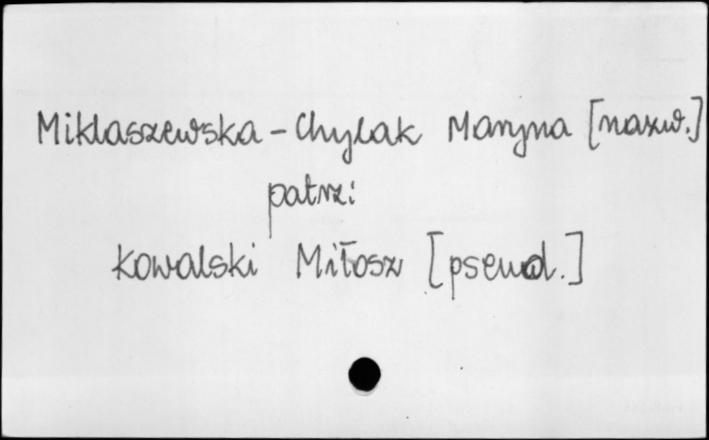 Miklaszewska-Chylak Maryna [nazw.]
patrz:
Kowalski Miłosz [pseud.]